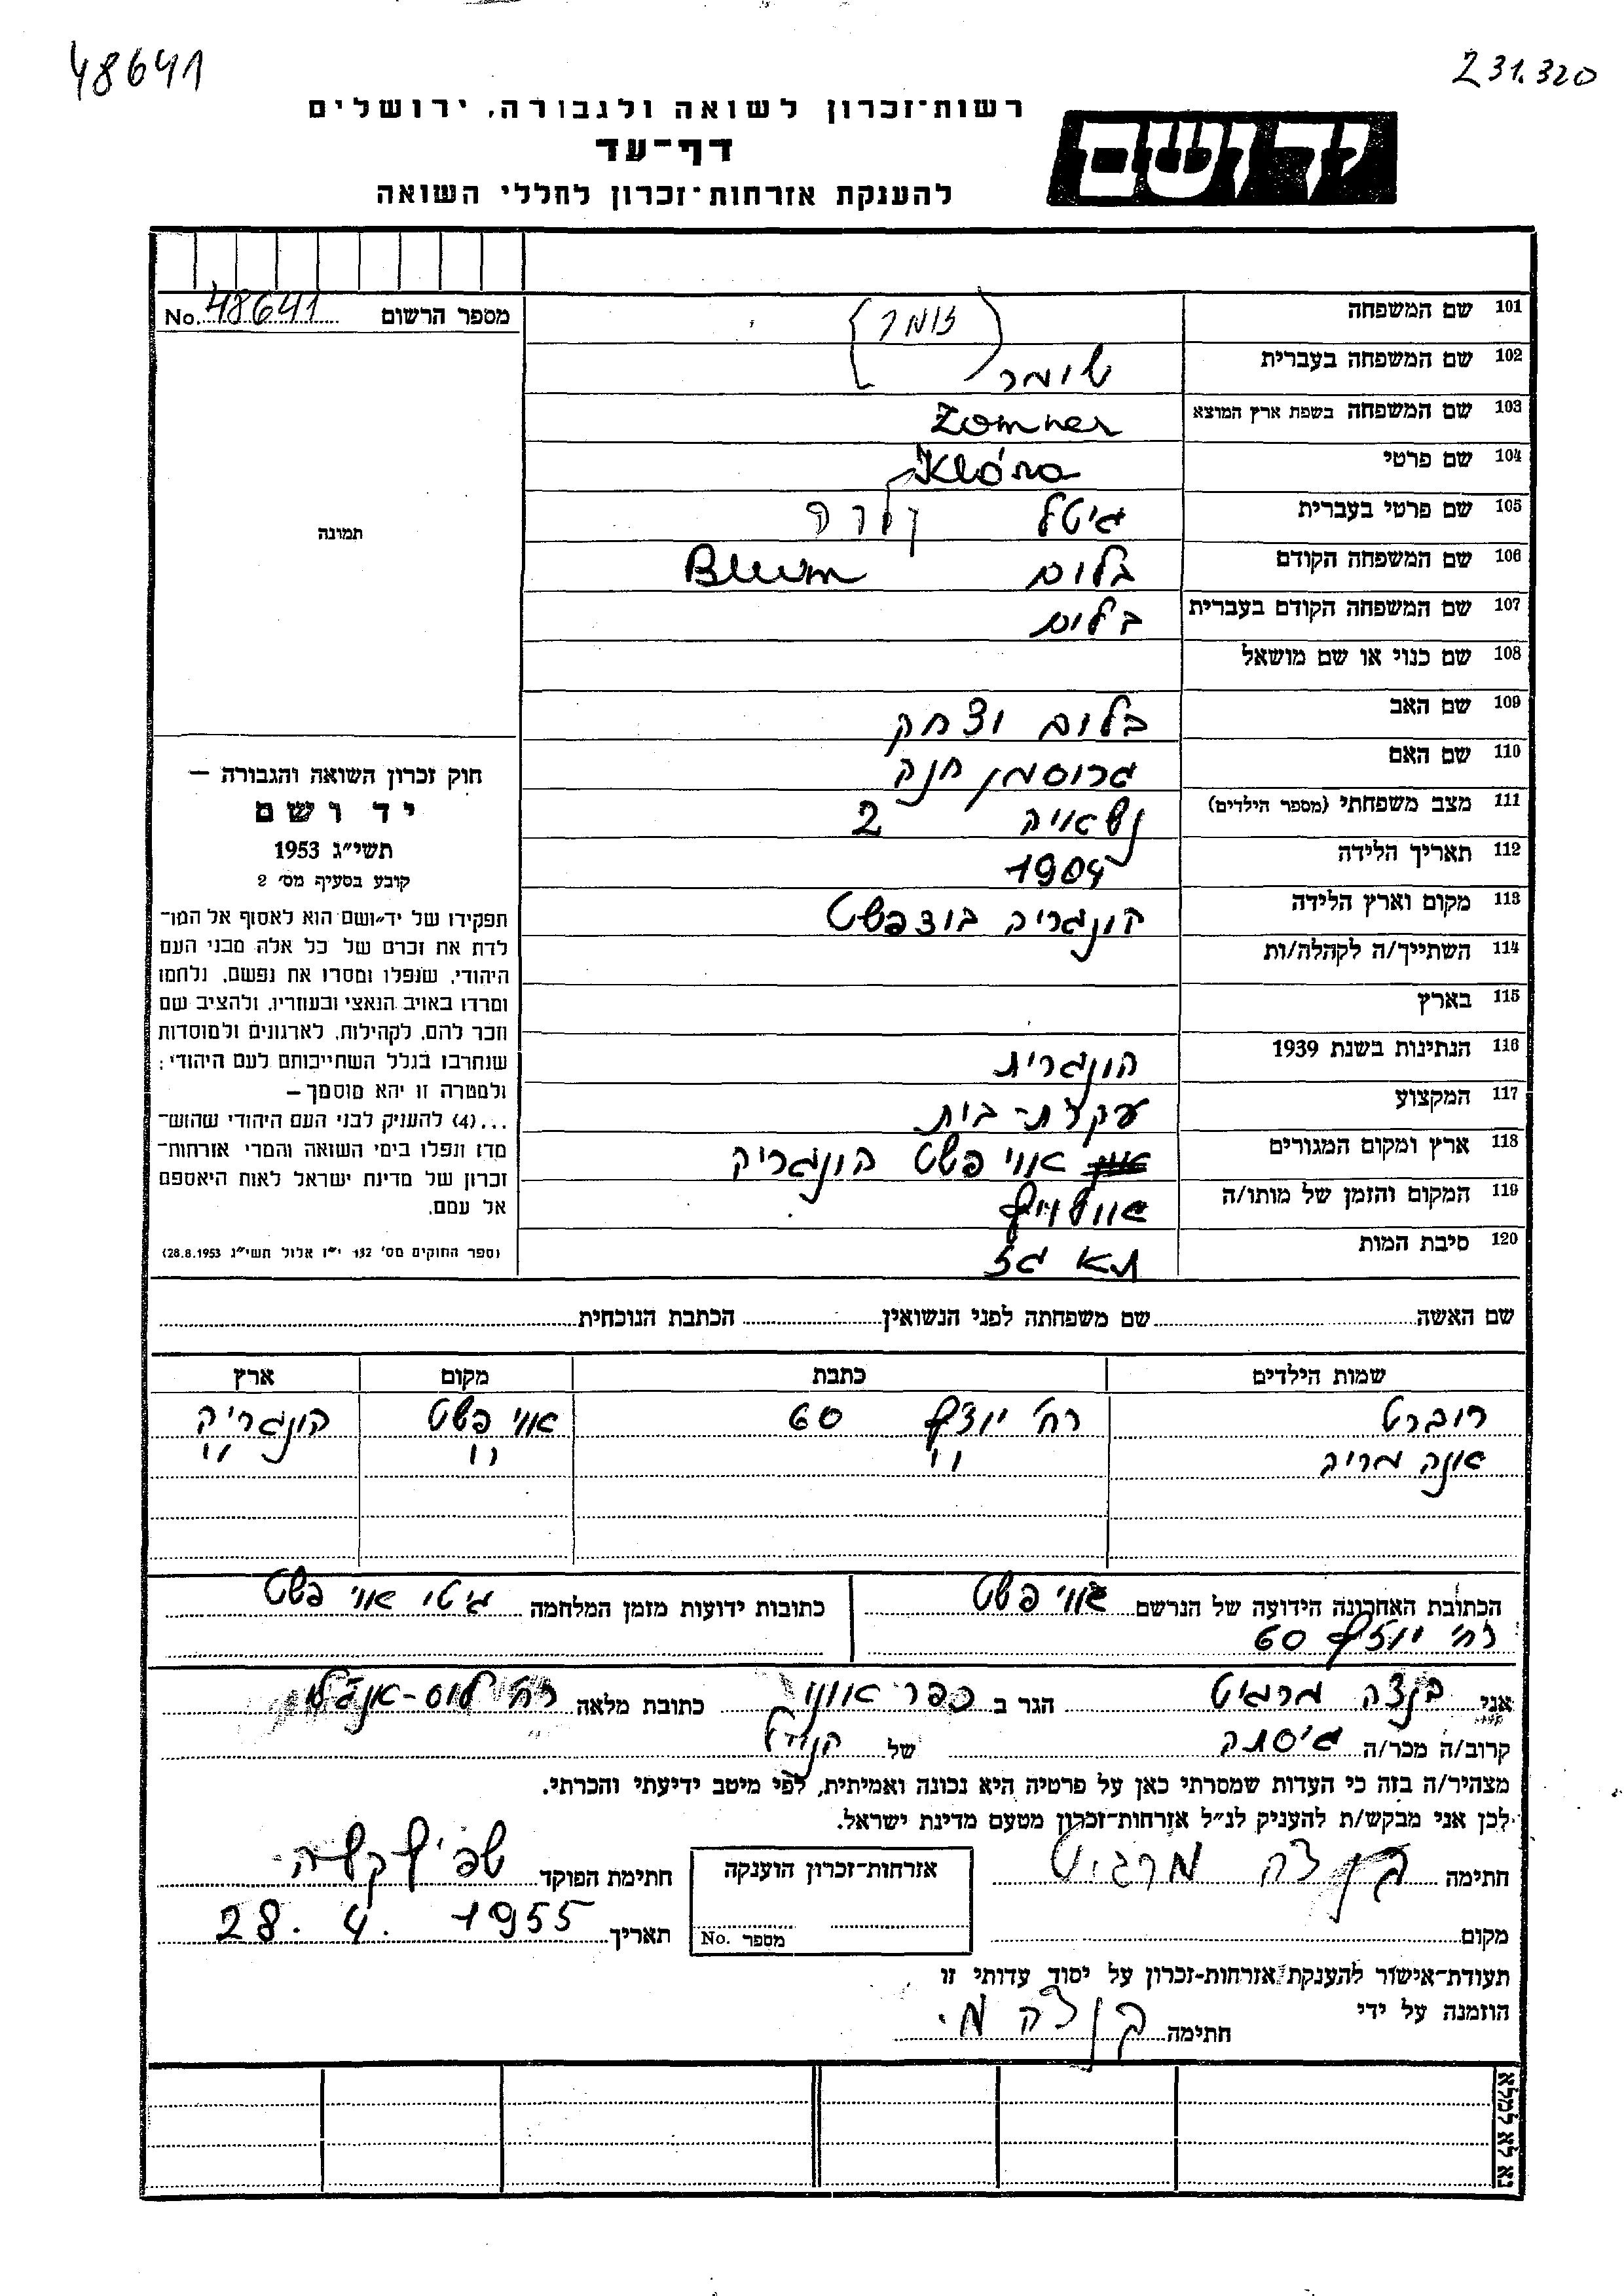 48641
231.320
רשות־זכרון לשואה ולגבורה, ירושלים
יד ושם
דף־עד
להענקת אזרחות־זכרון לחללי השואה
מספר הרשום No. 48641
תמונה
101 שם המשפחה (זומר)
102 שם המשפחה בעברית שומר
103 שם המשפחה בשפת ארץ המוצא Zomner
104 שם פרטי Klára
105 שם פרטי בעברית גיטל קלרה
106 שם המשפחה הקודם בלום Blum
107 שם המשפחה הקודם בעברית בלום
108 שם כנוי או שם מושאל
109 שם האב בלום יצחק
110 שם האם גרוסמן חנה
111 מצב משפחתי (מספר הילדים) נשאויה 2
112 תאריך הלידה 1904
113 מקום וארץ הלידה הונגריה בודפשט
114 השתייך/ה לקהלה/ות
115 בארץ
116 הנתינות בשנת 1939 הונגרית
117 המקצוע עקרת-בית
118 ארץ ומקום המגורים אוי פשט הונגריה
119 המקום והזמן של מותו/ה אוושויץ
120 סיבת המות תא גז
חוק זכרון השואה והגבורה —
יד ושם
תשי״ג 1953
קובע בסעיף מס׳ 2
תפקידו של יד־ושם הוא לאסוף אל המו־
לדת את זכרם של כל אלה מבני העם
היהודי, שנפלו ומסרו את נפשם, נלחמו
ומרדו באויב הנאצי ובעוזריו, ולהציב שם
וזכר להם, לקהילות, לארגונים ולמוסדות
שנחרבו בגלל השתייכותם לעם היהודי;
ולמטרה זו יהא מוסמך —
...(4) להעניק לבני העם היהודי שהוש־
מדו ונפלו בימי השואה והמרי אזרחות־
זכרון של מדינת ישראל לאות היאספם
אל עמם.
(ספר החוקים מס׳ 132 י״ז אלול תשי״ג 28.8.1953)
שם האשה שם משפחתה לפני הנשואין הכתבת הנוכחית
שמות הילדים כתבת מקום ארץ
רוברט רח׳ יוזף 60 אוי פשט הונגריה
אנה מריה וי וי וי
הכתובת האחרונה הידועה של הנרשם אוי פשט
רח׳ יוזף 60
כתובות ידועות מזמן המלחמה גיטו אוי פשט
אני בנצה מרגיט הגר ב כפר אונו כתובת מלאה רח׳ לוס-אנג׳לס
קרוב/ה מכר/ה גיסתה של הנ״ל
מצהיר/ה בזה כי העדות שמסרתי כאן על פרטיה היא נכונה ואמיתית, לפי מיטב ידיעתי והכרתי.
לכן אני מבקש/ת להעניק לנ״ל אזרחות־זכרון מטעם מדינת ישראל.
חתימה בנצה מרגיט
אזרחות־זכרון הוענקה
מספר No.
חתימת הפוקד
מקום
תאריך 28. 4. 1955
תעודת־אישור להענקת אזרחות־זכרון על יסוד עדותי זו
הוזמנה על ידי
חתימה בנצה מ.
נא לא למלא